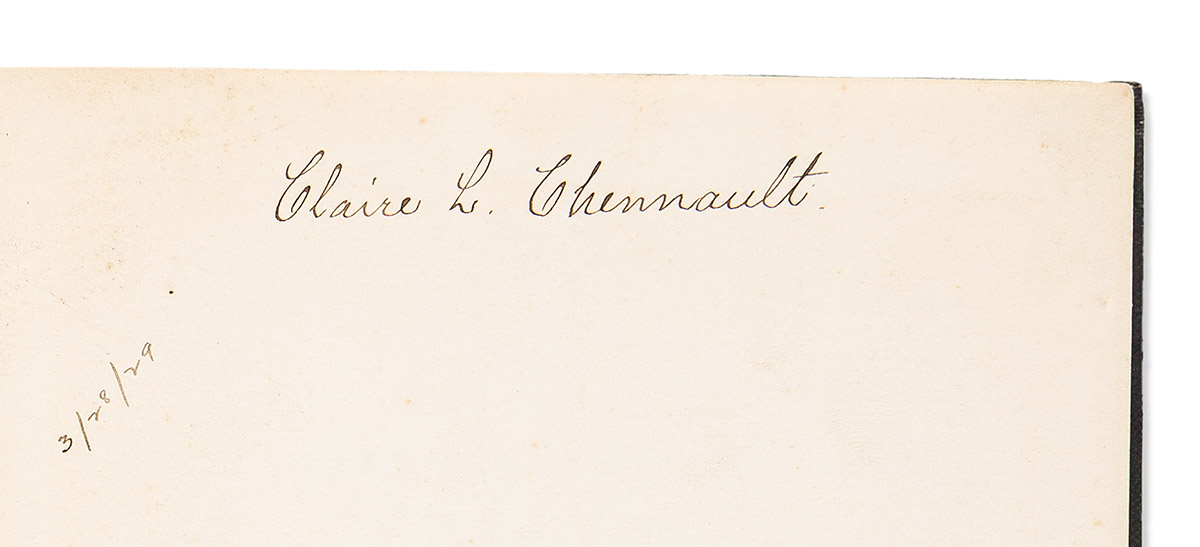 Claire L. Chennault.
3/28/29